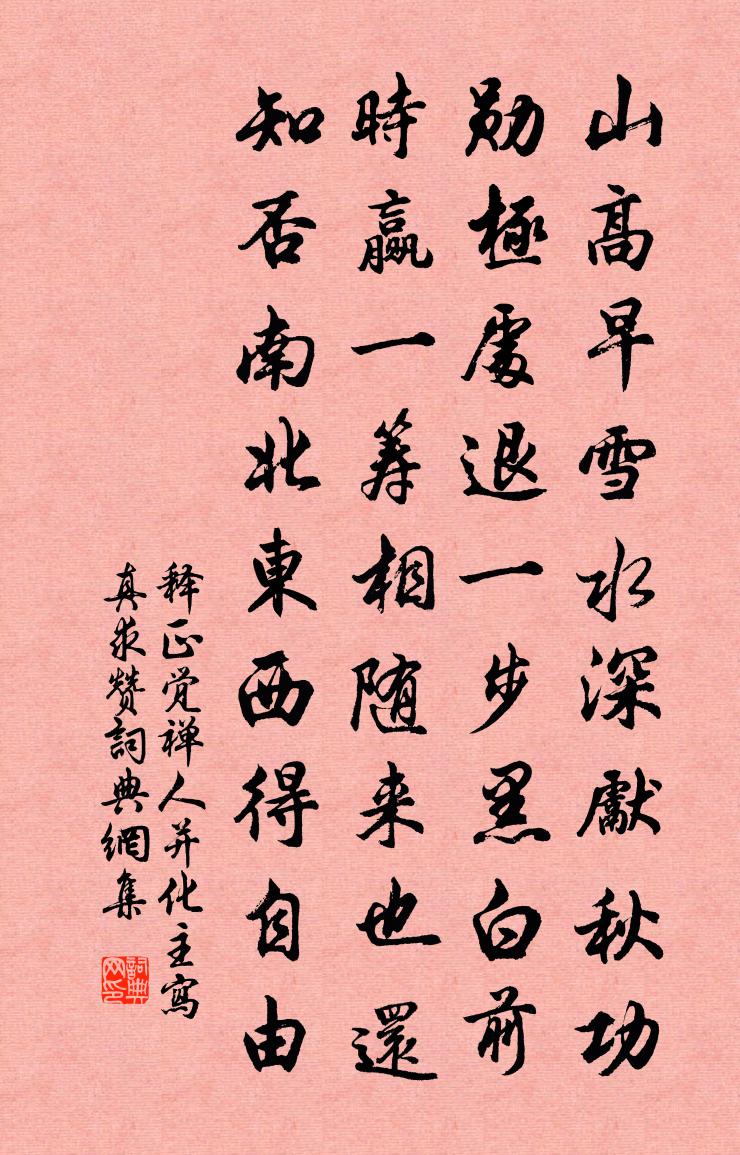 山高早雪水深獻秋功
勛極處退一步黑白前
時贏一筹相随来也還
知否南北東西得自由
释正觉禅人并化主寫
真求赞詞典網集
詞典网印